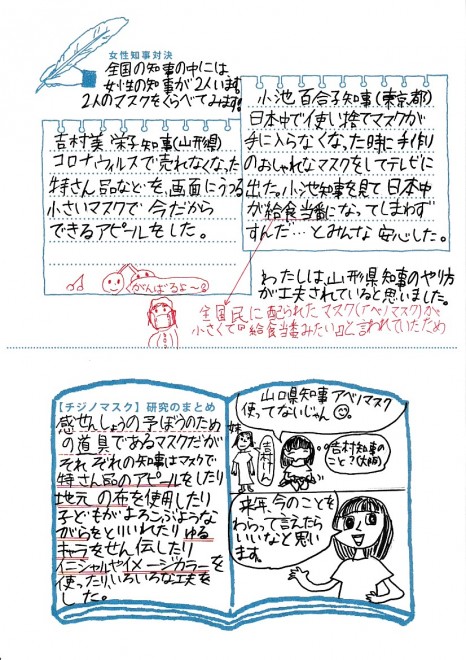 女性知事対決
全国の知事の中には
女性の知事が2人います
2人のマスクをくらべてみます!
吉村美栄子知事(山形県)
コロナウィルスで売れなくなった
特さん品などを、画面にうつる
小さいマスクで今だから
できるアピールをした。
小池百合子知事(東京都)
日本中で使い捨てマスクが
手に入らなくなった時に手作り
のおしゃれなマスクをしてテレビに
出た。小池知事を見て日本中
が給食当番になってしまわず
すんだ…とみんな安心した。
がんばるよ〜
わたしは、山形県知事のやり方
が工夫されていると思いました。
全国民に配られたマスク(アベノマスク)が
小さくて『給食当番みたい』と言われていたため
【チジノマスク】研究のまとめ
感せんしょうの予ぼうのため
の道具であるマスクだが
それぞれの知事はマスクで
特さん品のアピールをしたり
地元の布を使用したり
子どもがよろこぶような
がらをとりいれたりゆる
キャラをせん伝したり
イニシャルやイメージカラーを
使ったり、いろいろな工夫を
した。
山口県知事アベノマスク
使ってないじゃん
妹
吉村くん
吉村知事の
こと?(大阪)
来年、今のことを
わらって言えたら
いいなと思い
ます。